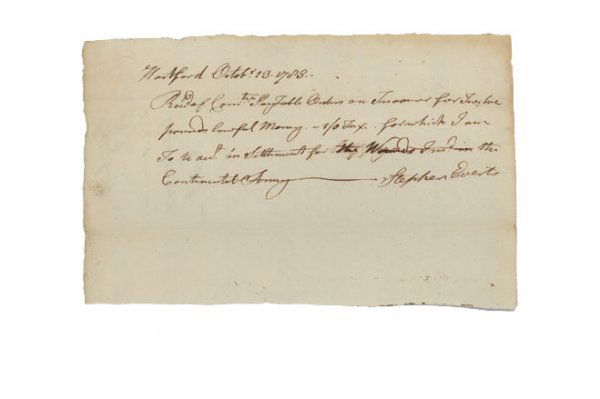 Hartford Octobr. 13. 1783.
Recd. of Comtee. PayTable Orders on Treasurer for Twelve
pounds lawful Money – 1/0 Tax. for which I am
To be acct. in Settlment for the Wounds in the
Continental Army Stephen Everts